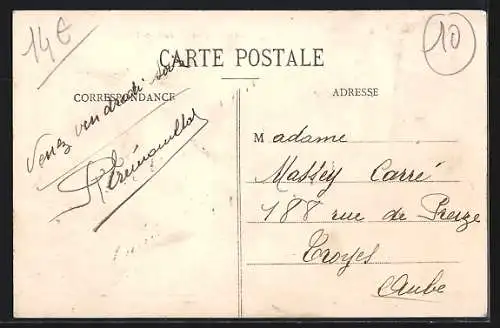 14€
10
CARTE POSTALE
CORRESPONDANCE
ADRESSE
Venez vendredi soir
Madame
Massey Carré
188 rue de Preize
Troyes
Aube